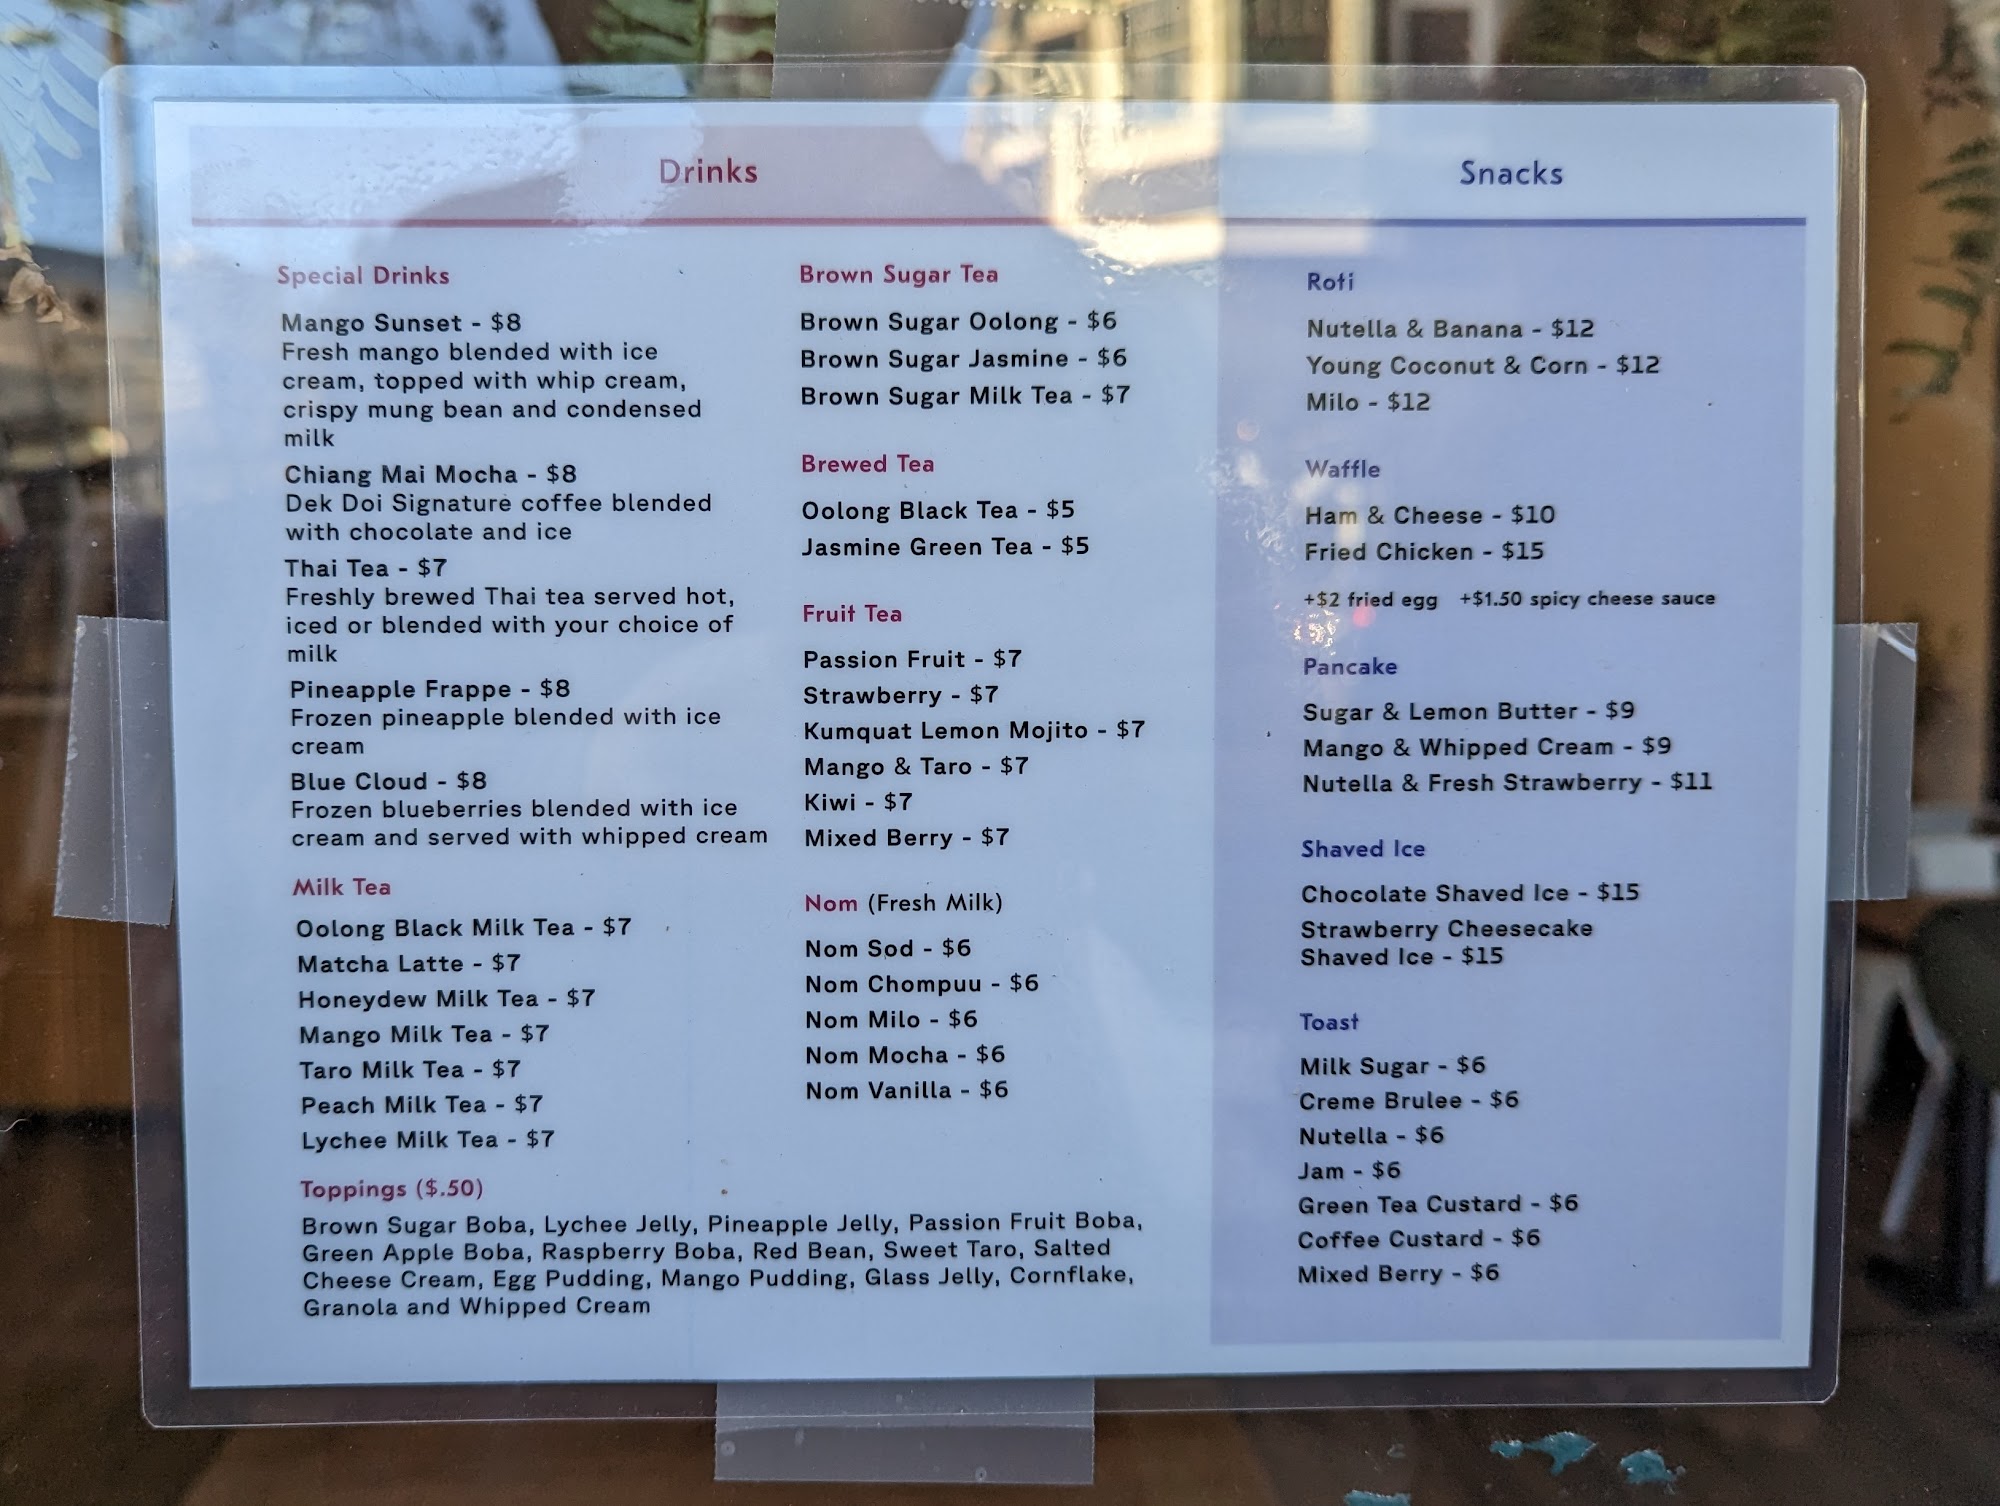 Drinks
Special Drinks
Mango Sunset - $8
Fresh mango blended with ice
cream, topped with whip cream,
crispy mung bean and condensed
milk
Chiang Mai Mocha - $8
Dek Doi Signature coffee blended
with chocolate and ice
Thai Tea - $7
Freshly brewed Thai tea served hot,
iced or blended with your choice of
milk
Pineapple Frappe - $8
Frozen pineapple blended with ice
cream
Blue Cloud - $8
Frozen blueberries blended with ice
cream and served with whipped cream
Milk Tea
Oolong Black Milk Tea - $7
Matcha Latte - $7
Honeydew Milk Tea - $7
Mango Milk Tea - $7
Taro Milk Tea - $7
Peach Milk Tea - $7
Lychee Milk Tea - $7
Brown Sugar Tea
Brown Sugar Oolong - $6
Brown Sugar Jasmine - $6
Brown Sugar Milk Tea - $7
Brewed Tea
Oolong Black Tea - $5
Jasmine Green Tea - $5
Fruit Tea
Passion Fruit - $7
Strawberry - $7
Kumquat Lemon Mojito - $7
Mango & Taro - $7
Kiwi - $7
Mixed Berry - $7
Nom (Fresh Milk)
Nom Sod - $6
Nom Chompuu - $6
Nom Milo - $6
Nom Mocha - $6
Nom Vanilla - $6
Toppings ($.50)
Brown Sugar Boba, Lychee Jelly, Pineapple Jelly, Passion Fruit Boba,
Green Apple Boba, Raspberry Boba, Red Bean, Sweet Taro, Salted
Cheese Cream, Egg Pudding, Mango Pudding, Glass Jelly, Cornflake,
Granola and Whipped Cream
Snacks
Roti
Nutella & Banana - $12
Young Coconut & Corn - $12
Milo - $12
Waffle
Ham & Cheese - $10
Fried Chicken - $15
+$2 fried egg +$1.50 spicy cheese sauce
Pancake
Sugar & Lemon Butter - $9
Mango & Whipped Cream - $9
Nutella & Fresh Strawberry - $11
Shaved Ice
Chocolate Shaved Ice - $15
Strawberry Cheesecake
Shaved Ice - $15
Toast
Milk Sugar - $6
Creme Brulee - $6
Nutella - $6
Jam - $6
Green Tea Custard - $6
Coffee Custard - $6
Mixed Berry - $6